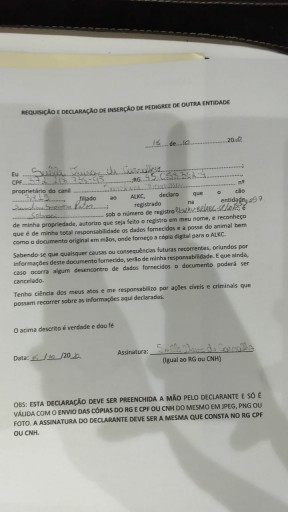 REQUISIÇÃO E DECLARAÇÃO DE INSERÇÃO DE PEDIGREE DE OUTRA ENTIDADE
16 de 10 2020
Eu
CPF RG nº
proprietário do canil
filiado ao ALKC, declaro que o cão
registrado na entidade
sob o número de registro é
de minha propriedade, autorizo que seja feito o registro em meu nome, e reconheço
que é de minha total responsabilidade os dados fornecidos e a posse do animal bem
como o documento original em mãos, onde forneço a cópia digital para o ALKC.
Sabendo se que quaisquer causas ou consequências futuras recorrentes, oriundos por
informações deste documento fornecido, serão de minha responsabilidade. E que ainda,
caso ocorra algum desencontro de dados fornecidos o documento poderá ser
cancelado.
Tenho ciência dos meus atos e me responsabilizo por ações cíveis e criminais que
possam recorrer sobre as informações aqui declaradas.
O acima descrito é verdade e dou fé
Data: /20 Assinatura:
(Igual ao RG ou CNH)
OBS: ESTA DECLARAÇÃO DEVE SER PREENCHIDA A MÃO PELO DECLARANTE E SÓ É
VÁLIDA COM O ENVIO DAS CÓPIAS DO RG E CPF OU CNH DO MESMO EM JPEG, PNG OU
FOTO. A ASSINATURA DO DECLARANTE DEVE SER A MESMA QUE CONSTA NO RG CPF
OU CNH.